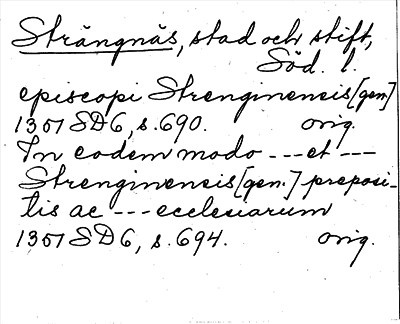 Strängnäs, stad och stift,
Söd. l.
episcopi Strenginensis [gen]
1351 SD6, s. 690. orig.
In eodem modo --- et ---
Strenginensis [gen.] preposi-
tis ac --- ecclesiarum
1351 SD6, s. 694. orig.